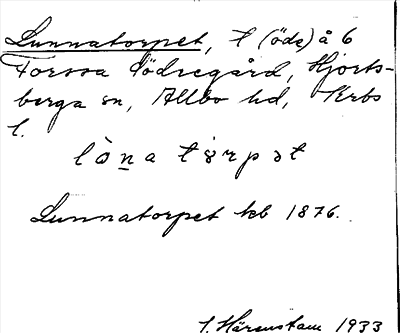 Lunnatorpet, t (öde) å 6
Forssa Södregård, Hjorts-
berga sn, Allbo hd, Krbs
l.
lòn̲a tórpət
Lunnatorpet kb 1876.
J. Härenstam 1933